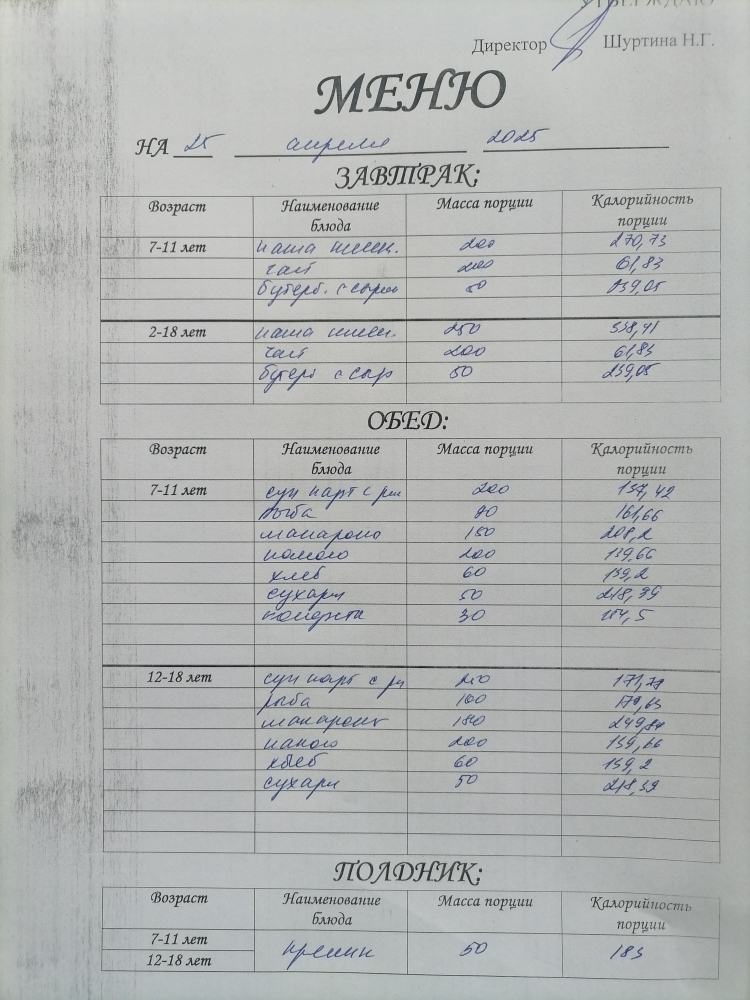 УТВЕРЖДАЮ
Директор Шуртина Н.Г.
МЕНЮ
НА 25 апреля 2025
ЗАВТРАК:
Возраст Наименование блюда Масса порции Калорийность порции
7-11 лет каша пшен. 200 270,73
чай 200 61,83
бутерб. с сыром 50 239,05
2-18 лет каша пшен. 250 338,41
чай 200 61,83
бутерб с сыр 50 239,05
ОБЕД:
Возраст Наименование блюда Масса порции Калорийность порции
7-11 лет суп карт с 200 137,42
рыба 90 161,66
макароны 150 208,2
какао 200 139,66
хлеб 60 139,2
сухари 50 218,39
конфета 30 154,5
12-18 лет суп карт с 250 171,79
рыба 100 179,63
макароны 180 249,84
какао 200 139,66
хлеб 60 139,2
сухари 50 218,39
ПОЛДНИК:
Возраст Наименование блюда Масса порции Калорийность порции
7-11 лет
50 183
12-18 лет